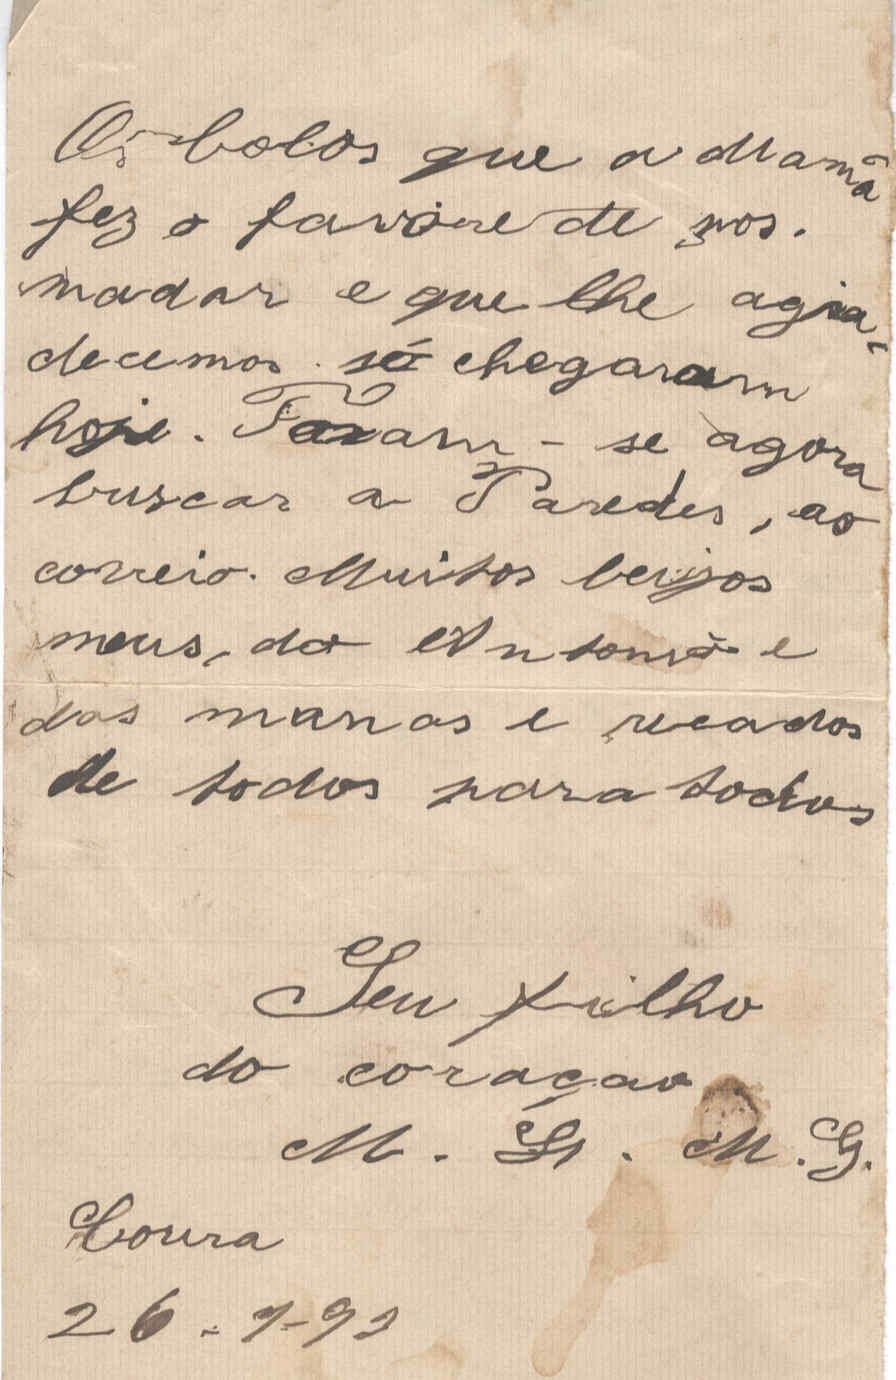 Os bolos que a Mamã
fez o favôre de nos.
madar e que lhe agra-
decemos só chegaram
hoje. Foram-se agora
buscar a Paredes, ao
correio. Muitos beijos
meus, do Antonio e
das manas e recados
de todos para todos
Seu filho
do coraçao
M. M. G.
Coura
26-7-93